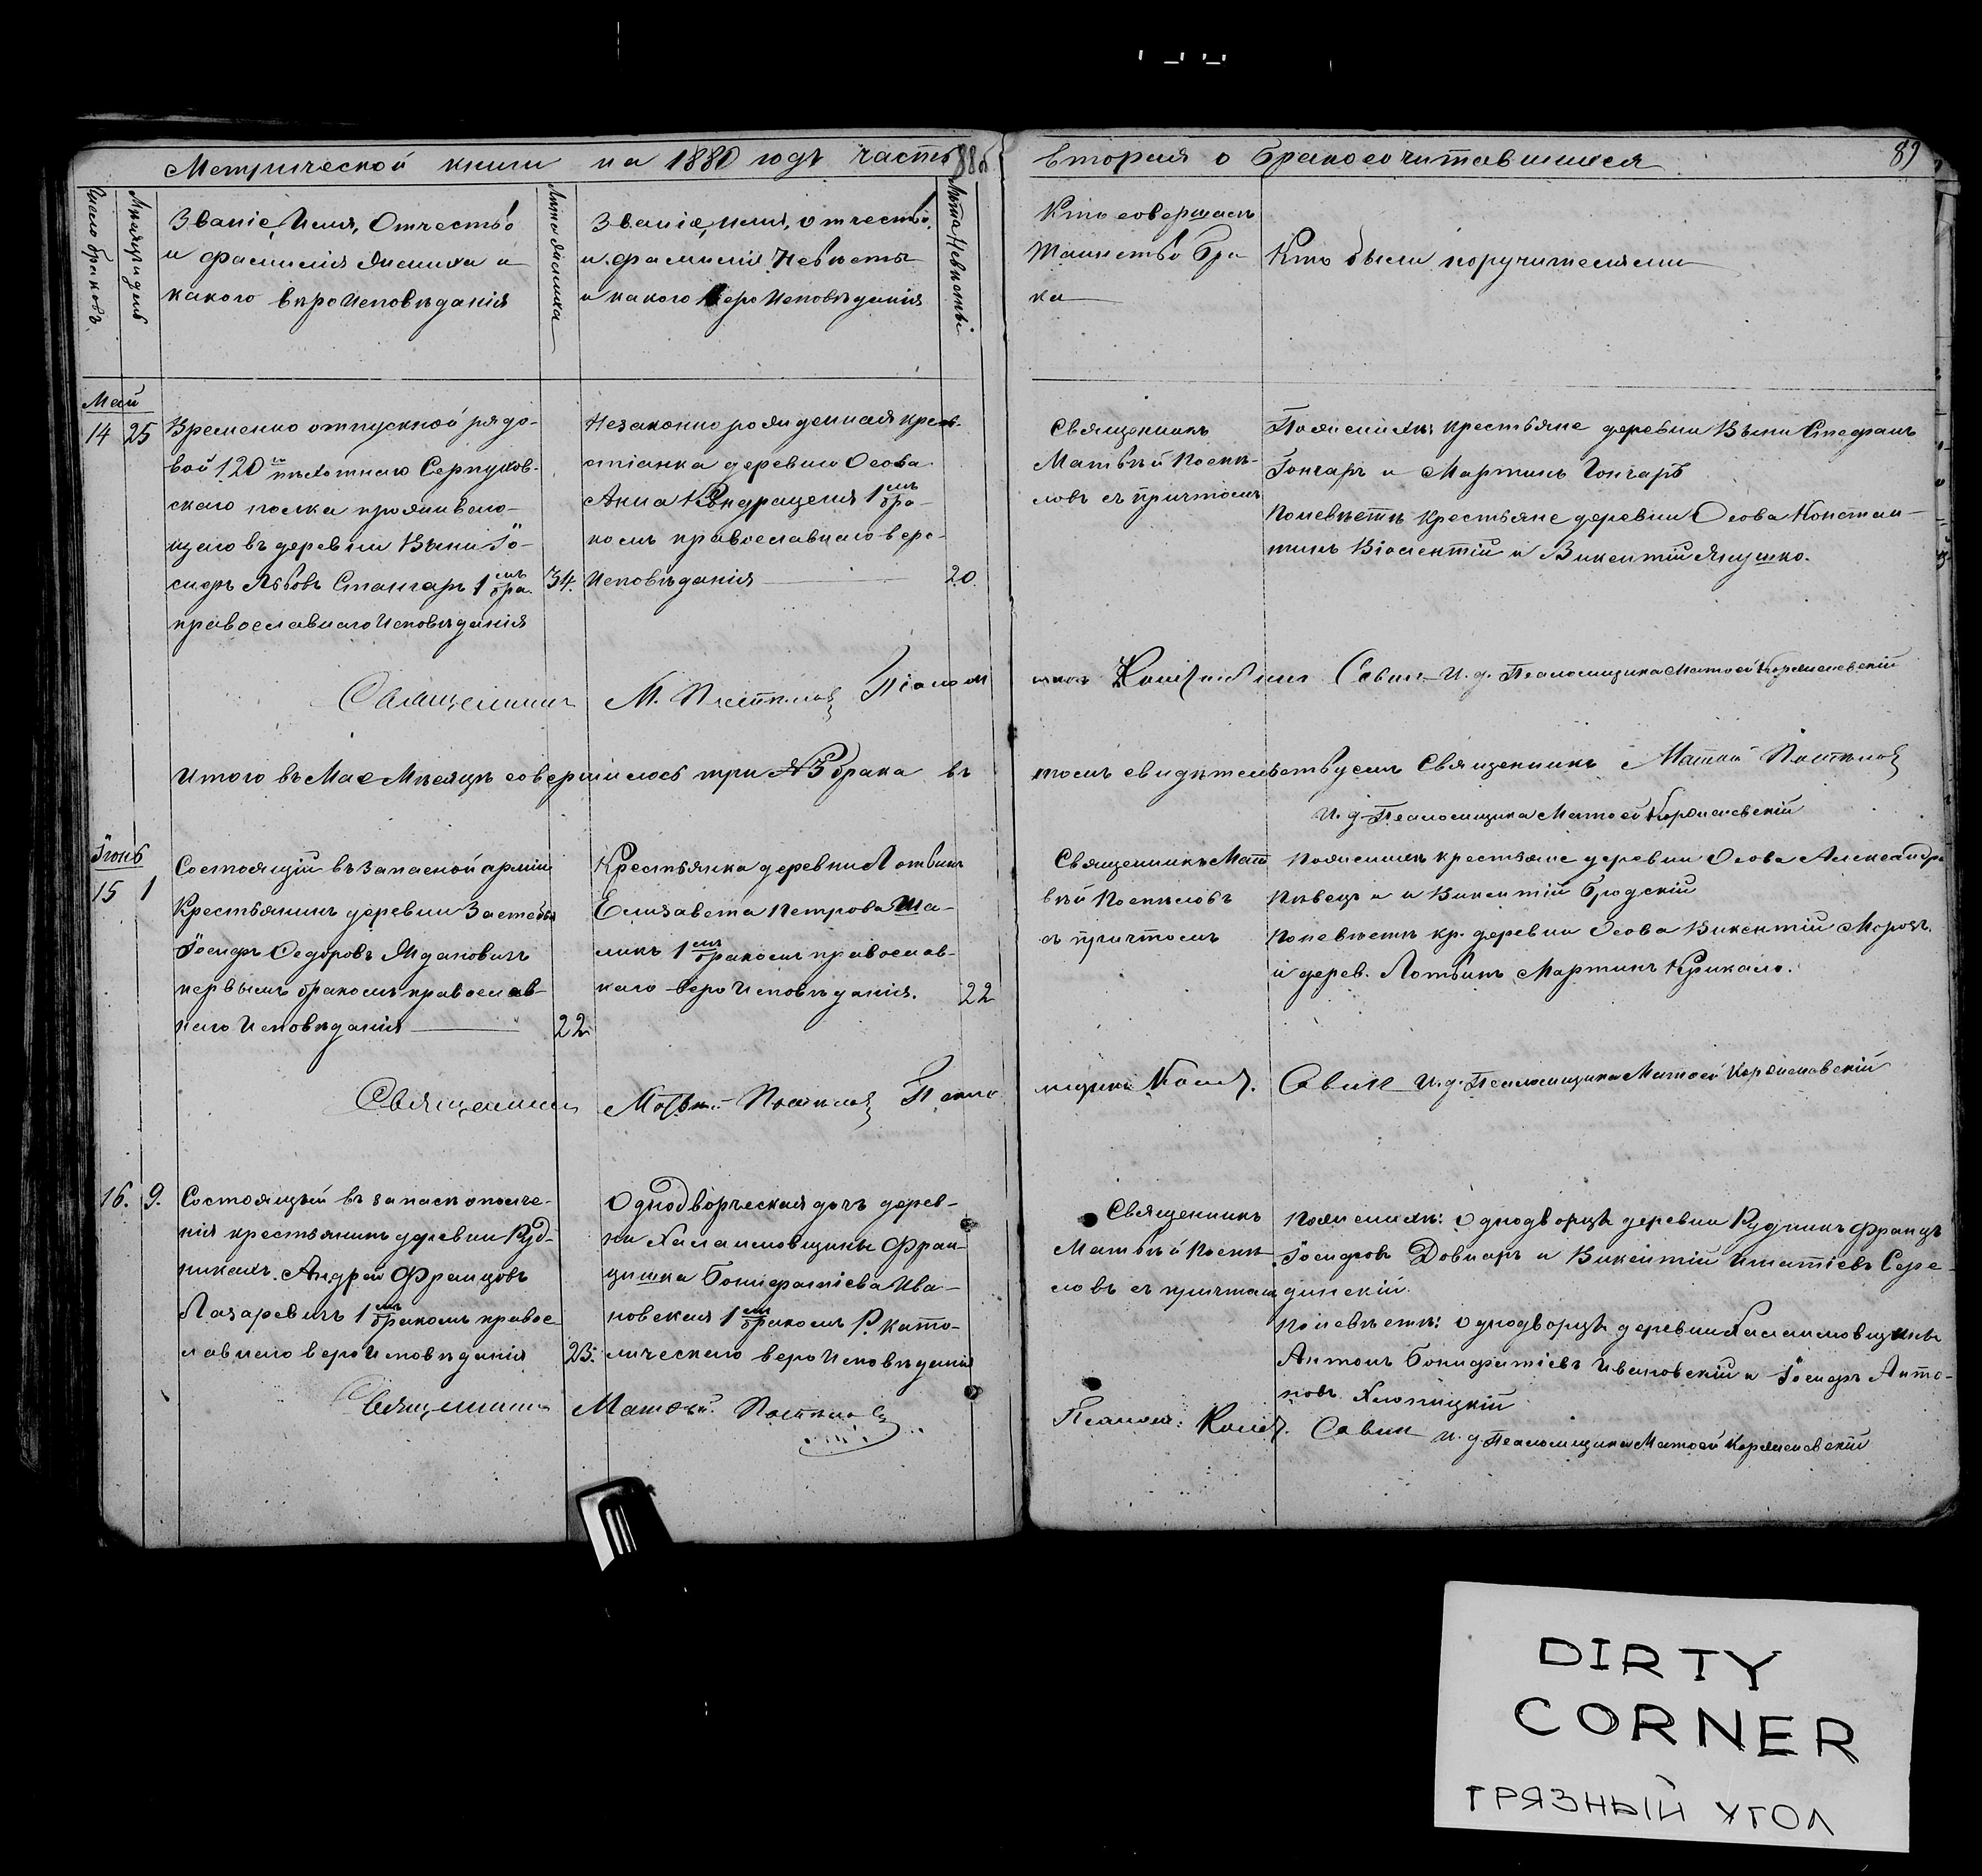 Метрической книги на 1880 годъ часть
88об
вторая о бракосочитавшихся
89
Число браковъ
Мѣсяцъ и день
Званіе, Имя, Отчество
и фамилія Жениха и
какого вѣроисповѣданія
Лѣта жениха
Званіе, имя, отчество,
и фамилія Невѣсты
и какого вероисповѣданія
Лѣта Невѣсты
Кто совершалъ
Таинство Бра
ка
Кто были поручителями
Май
14 25
Временно отпускной рядо-
вой 120го пѣхотнаго Серпухов-
скаго полка проживаю-
щаго въ деревни
сифъ 1мъ бра.
православнаго Исповѣданія
34.
Незаконно рожденная крес-
тіанка деревни Осова
Анна 1мъ бра-
комъ православнаго веро-
Исповѣданія
20
Священникъ
Матвѣй Поспѣ-
ловъ съ причтомъ
По женихѣ крестьяне деревни Стефанъ
Гончаръ и Мартинъ Гончаръ
По невѣстѣ крестьяне деревни Осова Констан-
тинъ и Викентій Янушко.
Священникъ М. Поспѣловъ Псалом
щикъ Савич И. д. Псаломщика Матѳей
Итого въ Мае Мѣсяцѣ совершилось три №3 брака въ
томъ свидѣтельствуемъ Священникъ Матвѣй Поспѣловъ
И. д. Псаломщика Матѳей
Іюнь
15 1
Состоящій въ запасной арміи
Крестьянинъ деревни
Іосифъ Ждановичъ
первымъ бракомъ православ-
наго Исповѣданія
22
Крестьянка деревни Лотвичъ
Елизавета Петрова Ша-
1мъ бракомъ православ-
наго вероисповѣданія.
22
Священникъ Мат
вѣй Поспѣловъ
съ причтомъ
По женихѣ крестьяне деревни Осова Александръ
Пѣвецъ и Викентій Бродскій
По невѣстѣ кр. деревни Осова Викентій Морозъ
и дерев. Лотвичъ Мартинъ Крикало.
Священникъ Матвѣй Поспѣловъ Псало
мщикъ Савич И. д. Псаломщика Матѳей
16. 9.
Состоящій въ запасѣ ополче-
нія крестьянинъ деревни Руд-
никахъ. Андрей Францовъ
Лазаревичъ 1мъ бракомъ правос
лавнаго вероисповѣданія
23.
Однодворческая дочь дерев-
ни Фран-
цишка Бонифатіева Ива-
новская 1мъ бракомъ Р. като-
лическаго вероисповѣданія
Священникъ
Матвѣй Поспѣ
ловъ съ причтом
По женихѣ: Однодворцы деревни Рудникъ Францъ
Іосифовъ Довнаръ и Викентій Игнатіевъ Сере-
динскій.
По невѣстѣ: Однодворцы деревни
Антонъ Бонифатіевъ Ивановскій и Іосифъ Анто-
новъ Хлопицкій
Священникъ Матвѣй Поспѣловъ
Псалом: Савич И. д. Псаломщика Матѳей
DIRTY
CORNER
ГРЯЗНЫЙ УГОЛ